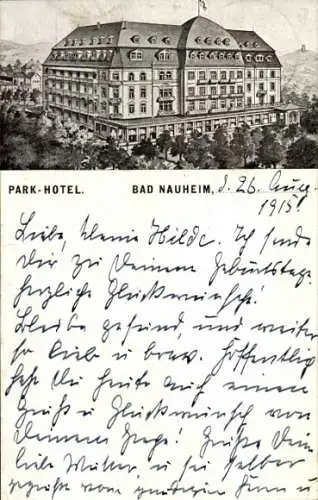 PARK-HOTEL. BAD NAUHEIM, d. 26. Aug.
1915!
Liebe, kleine Hilde. Ich sende
Dir zu Deinem Geburtstage
herzliche Glückwünsche!
Bleibe gesund, und weiter
so lieb u. brav. Hoffentlich
hast Du heute auch einen
Gruß u. Glückwunsch von
Deinem! Grüße Deine
liebe Mutter u. sei selber
gegrüßt vom u